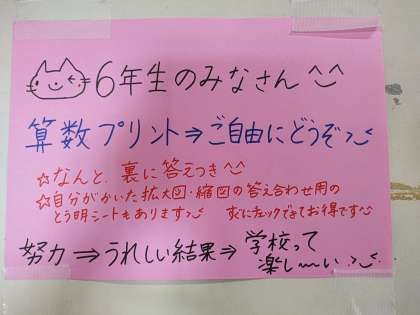 6年生のみなさん^^
算数プリント⇒ご自由にどうぞ
☆なんと、裏に答えつき^^
☆自分がかいた拡大図・縮図の答え合わせ用の
とう明シートもあります すぐにチェックできてお得です
努力⇒うれしい結果⇒学校って
楽し〜い